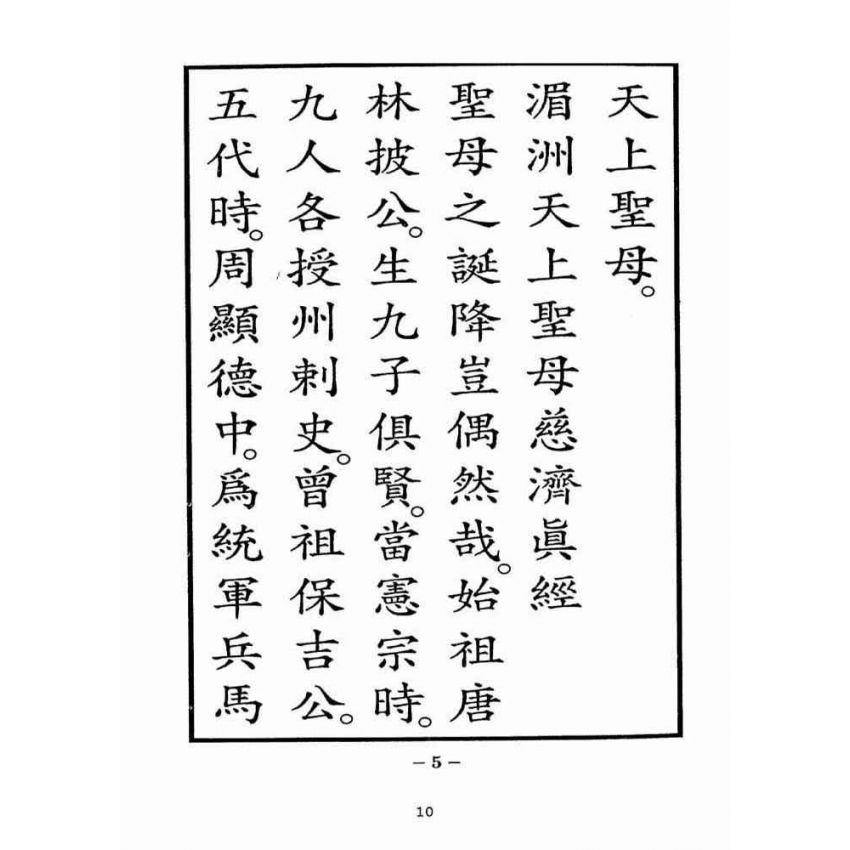 天上聖母。
湄洲天上聖母慈濟眞經
聖母之誕降豈偶然哉。始祖唐
林披公。生九子俱賢。當憲宗時。
九人各授州刺史。曾祖保吉公。
五代時。周顯德中。爲統軍兵馬
－5－
10